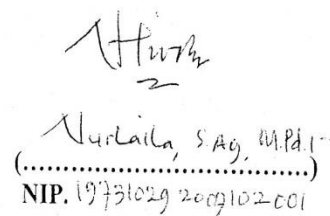 Nurlaila, S.Ag, M.Pd.I
(........................................)
NIP. 19731029 200710 2 001